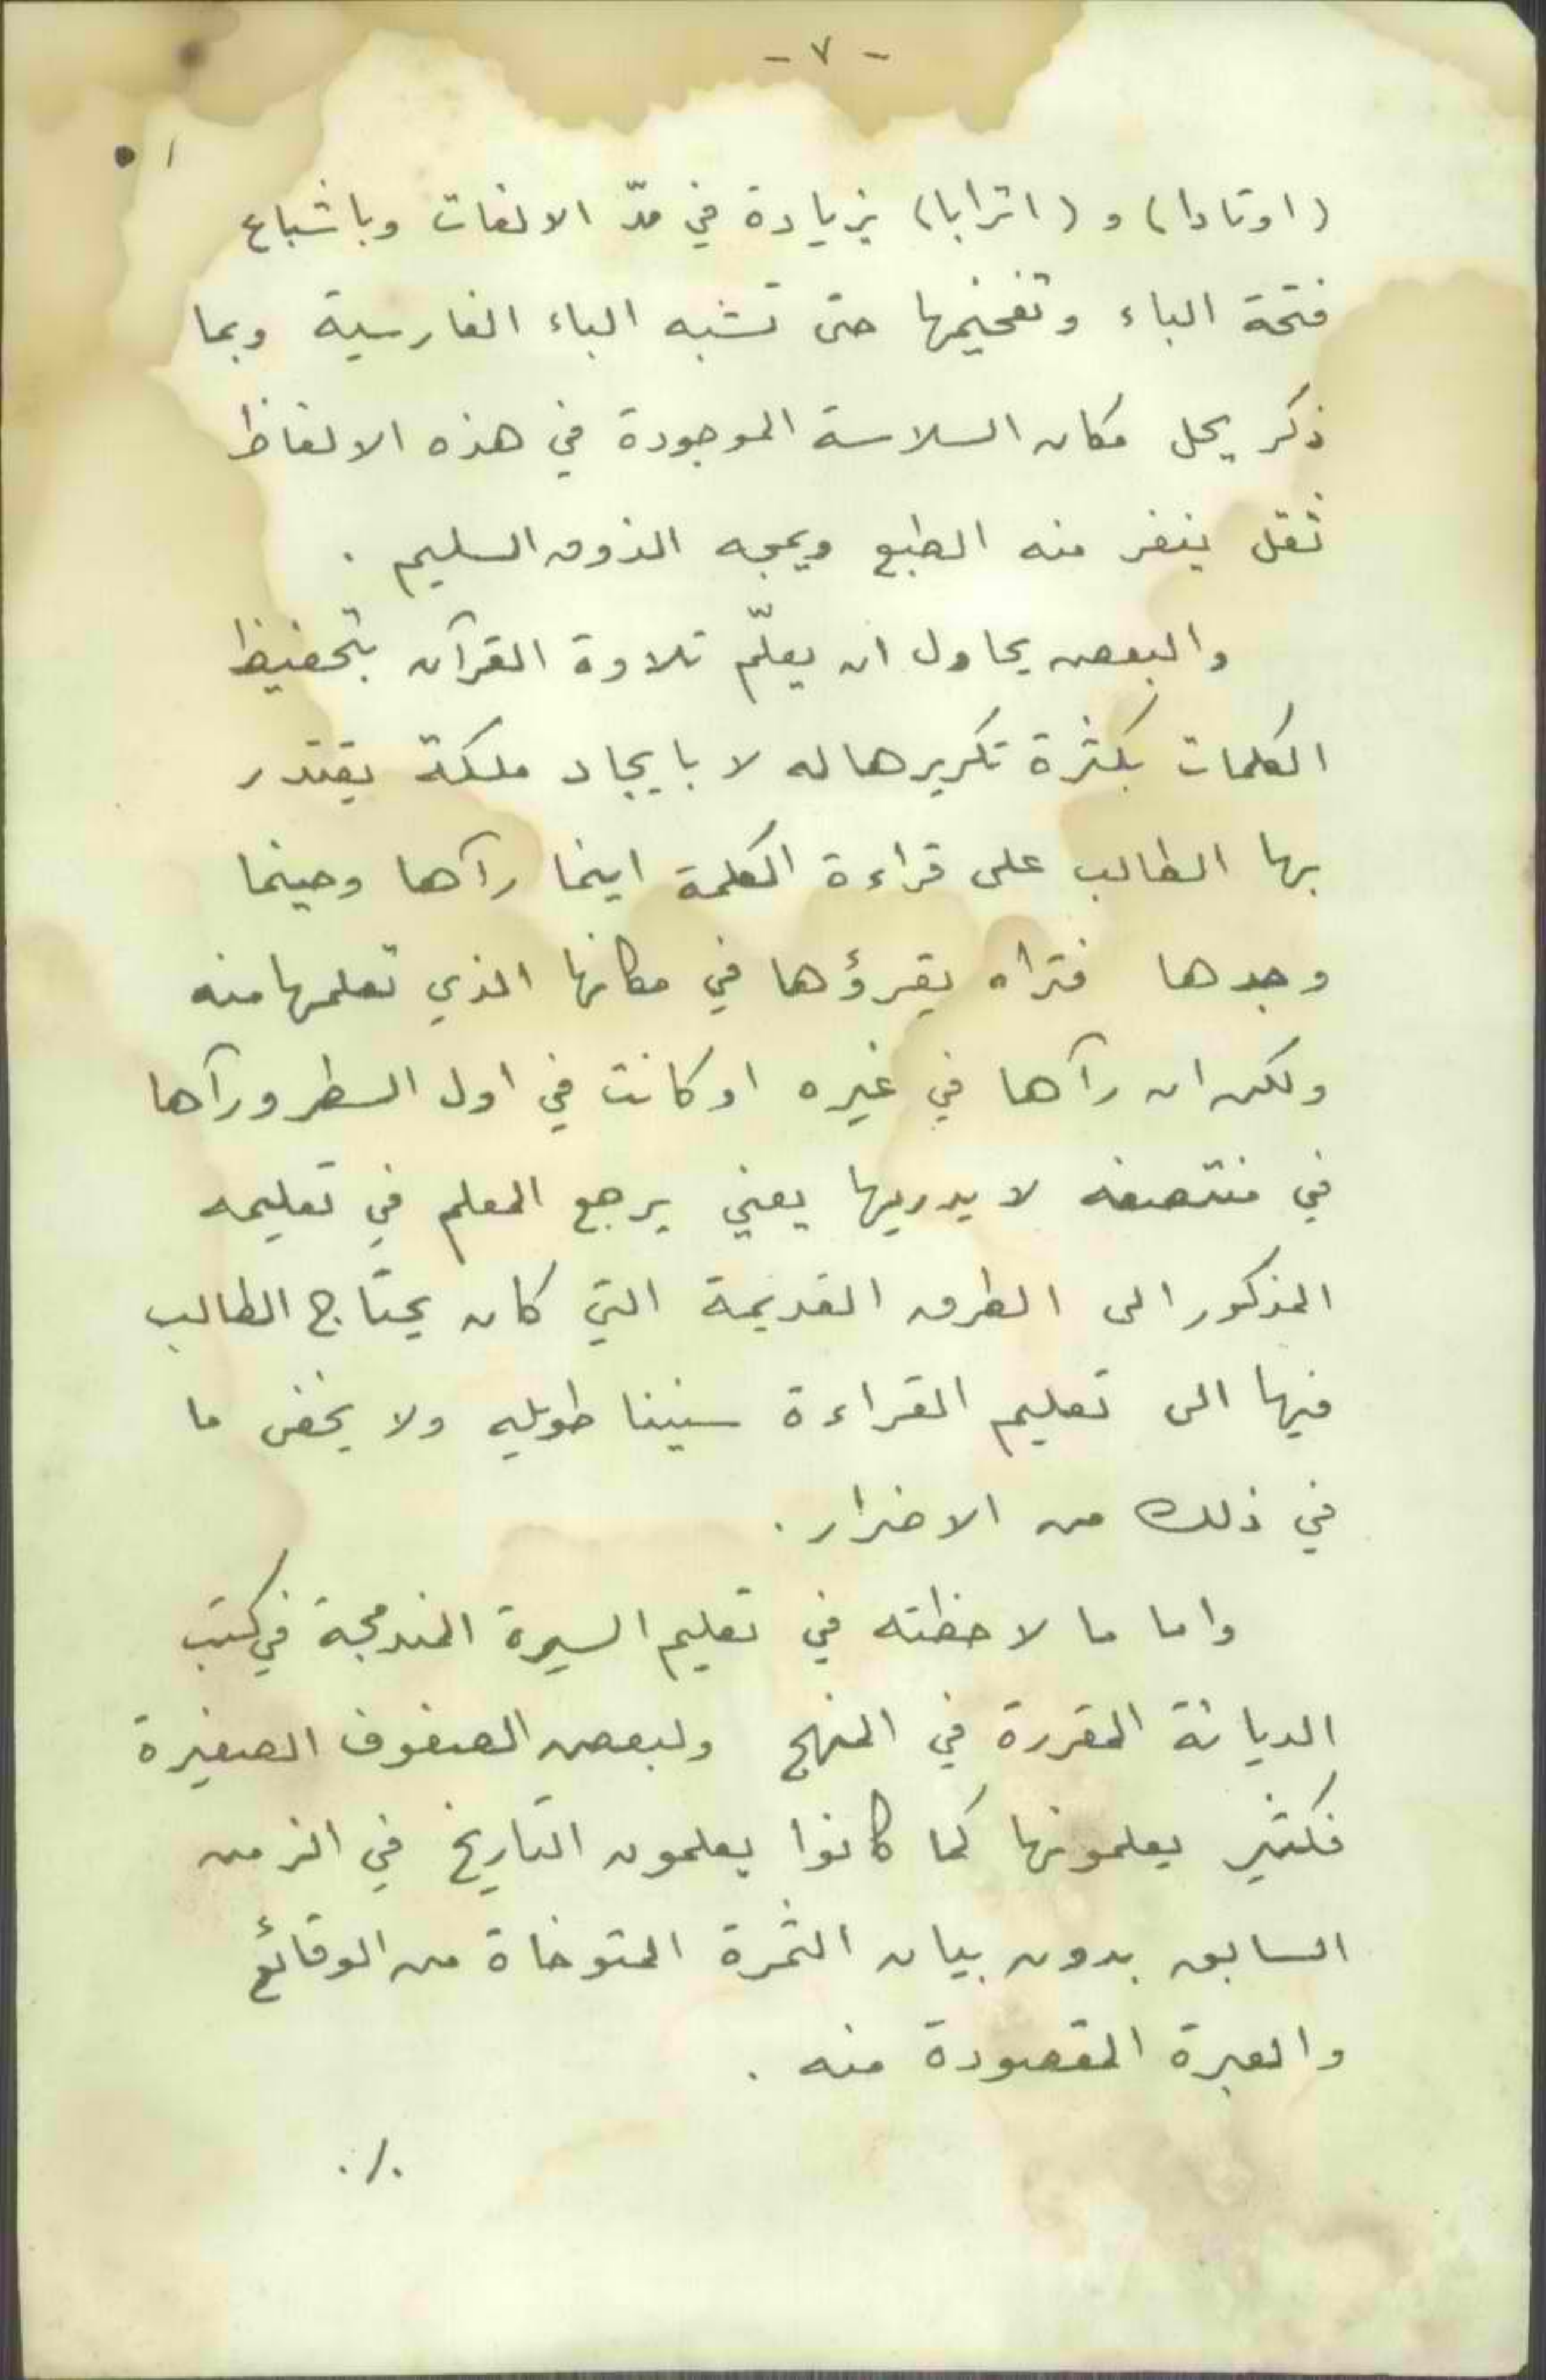 - ٧ -
(اوتادا) و (اترابا) بزيادة في مدّ الالفات وباشباع
فتحة الباء وتفخيمها حتى تشبه الباء الفارسية وبما
ذكر يحل مكان السلاسة الموجودة في هذه الالفاظ
ثقل ينفر منه الطبع ويمجه الذوق السليم .
والبعض يحاول ان يعلّم تلاوة القرآن بتحفيظ
الكلمات بكثرة تكريرها له لا بايجاد ملكة يقتدر
بها الطالب على قراءة الكلمة اينما رآها وحينما
وجدها فتراه يقرؤها في مكانها الذي تعلمها منه
ولكن ان رآها في غيره او كانت في اول السطر ورآها
في منتصفه لا يدريها يعني يرجع المعلم في تعليمه
المذكور الى الطرق القديمة التي كان يحتاج الطالب
فيها الى تعليم القراءة سنينا طويله ولا يخفى ما
في ذلك من الاضرار .
واما ما لاحظته في تعليم السيرة المندمجة في كتب
الديانة المقررة في المنهج ولبعض الصفوف الصغيرة
فكثير يعلمونها كما كانوا يعلمون التاريخ في الزمن
السابق بدون بيان الثمرة المتوخاة من الوقائع
والعبرة المقصودة منه .
./.